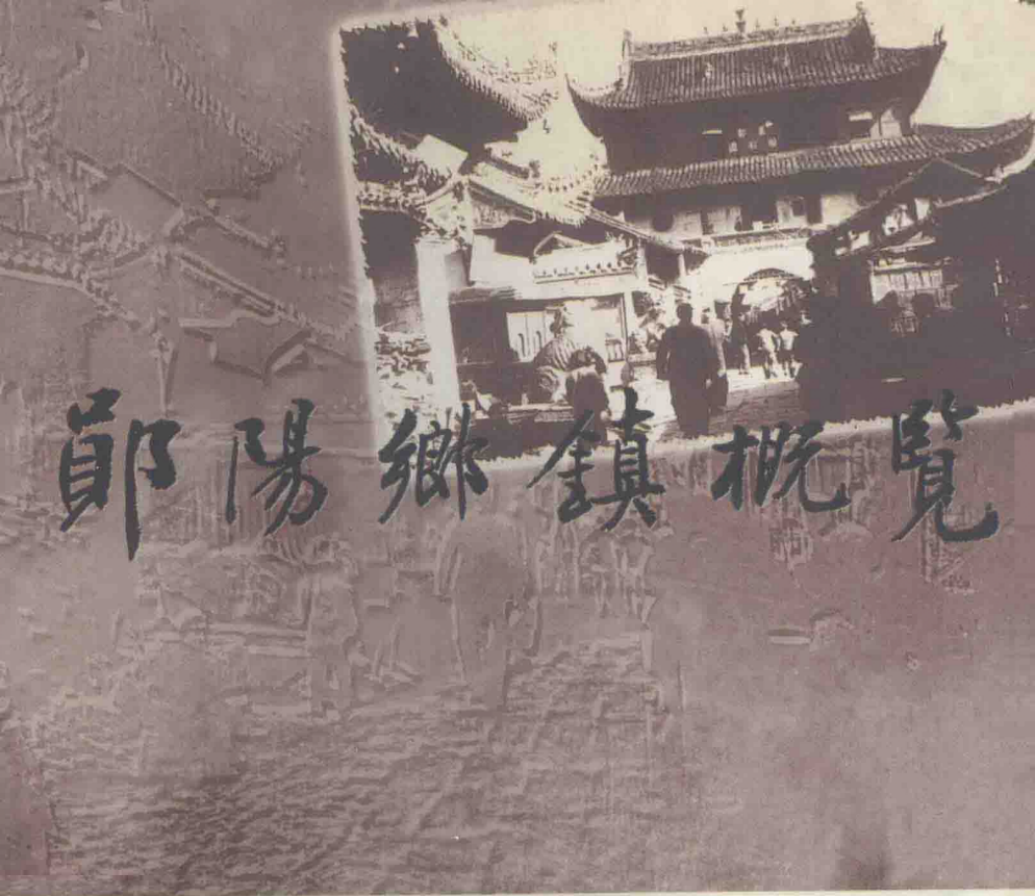 鄖陽鄉鎮概覽